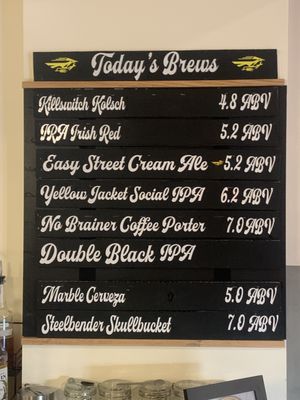 Today's Brews
Killswitch Kolsch 4.8 ABV
IRA Irish Red 5.2 ABV
Easy Street Cream Ale 5.2 ABV
Yellow Jacket Social IPA 6.2 ABV
No Brainer Coffee Porter 7.0 ABV
Double Black IPA
Marble Cerveza 5.0 ABV
Steelbender Skullbucket 7.0 ABV